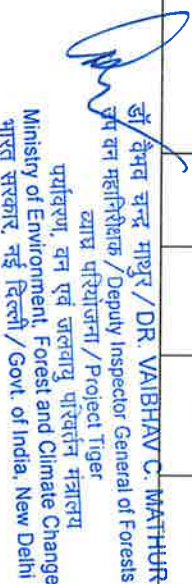 डॉ वैभव चन्द्र माथुर / DR. VAIBHAV C. MATHUR
उप वन महानिरीक्षक / Deputy Inspector General of Forests
व्याघ्र परियोजना / Project Tiger
पर्यावरण, वन एवं जलवायु परिवर्तन मंत्रालय
Ministry of Environment, Forest and Climate Change
भारत सरकार, नई दिल्ली / Govt. of India, New Delhi